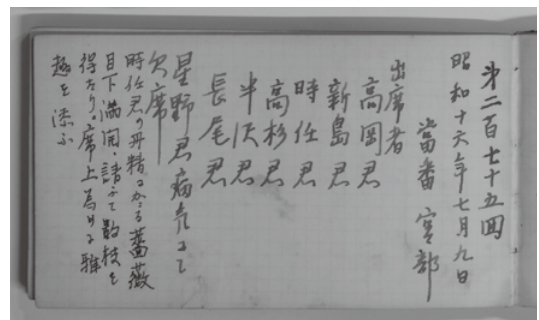 第二百七十五回
昭和十六年七月九日
當番 宮部
出席者
高岡君
新島君
時任君
高杉君
半沢君
長尾君
星野君病気ニテ
欠席
時任君ノ丹精ニカヽル薔薇
目下満開、請フテ数枝ヲ
得タリ。席上為メニ雅
趣ヲ添フ